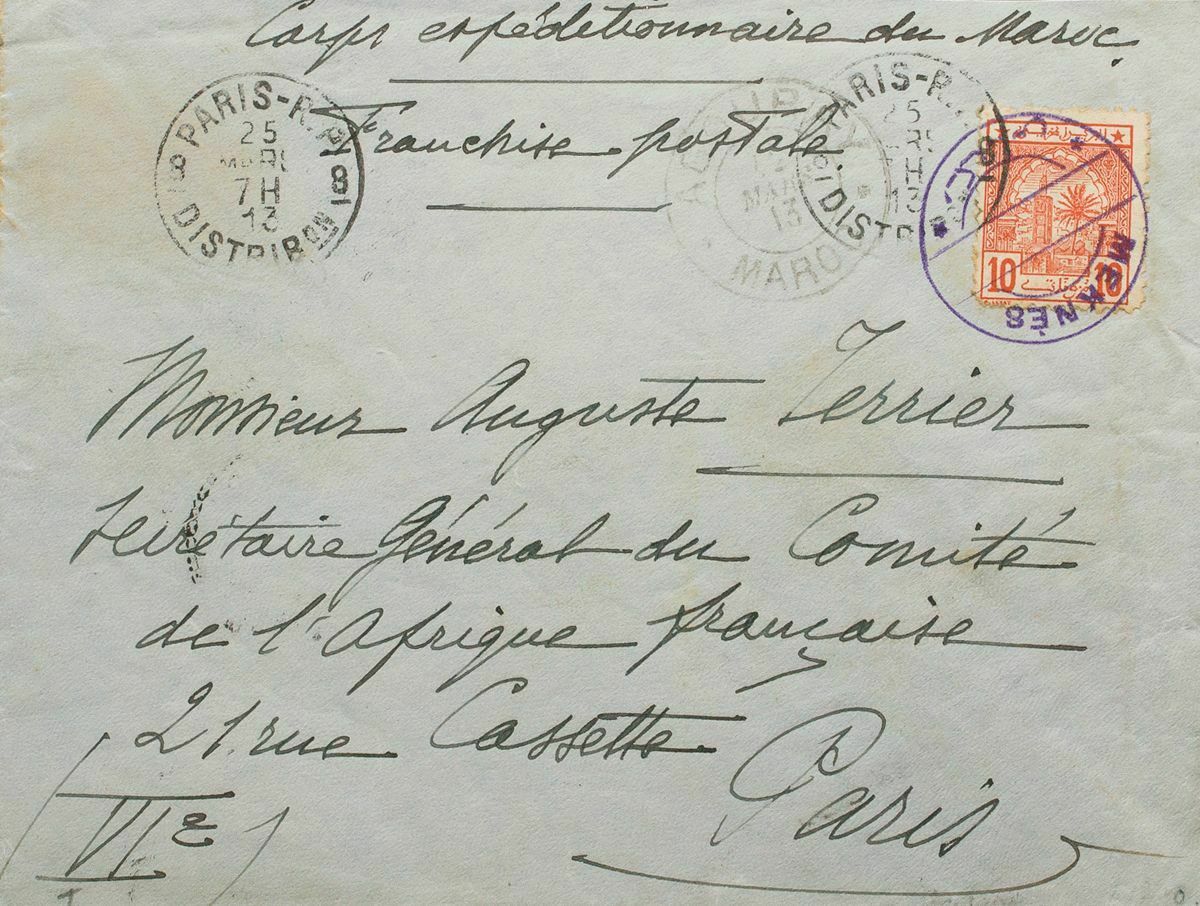 Corps expéditionnaire du Maroc
Franchise postale
PARIS-R.P.
25
7H
13
DISTRIBON
18
MAROC
MARS
13
PARIS-R.
25
13
DISTRIB
MEKNÈS
10
10
Monsieur Auguste Terrier
Secrétaire Général du Comité
de l'Afrique française
21 rue Cassette
Paris
(VIe)